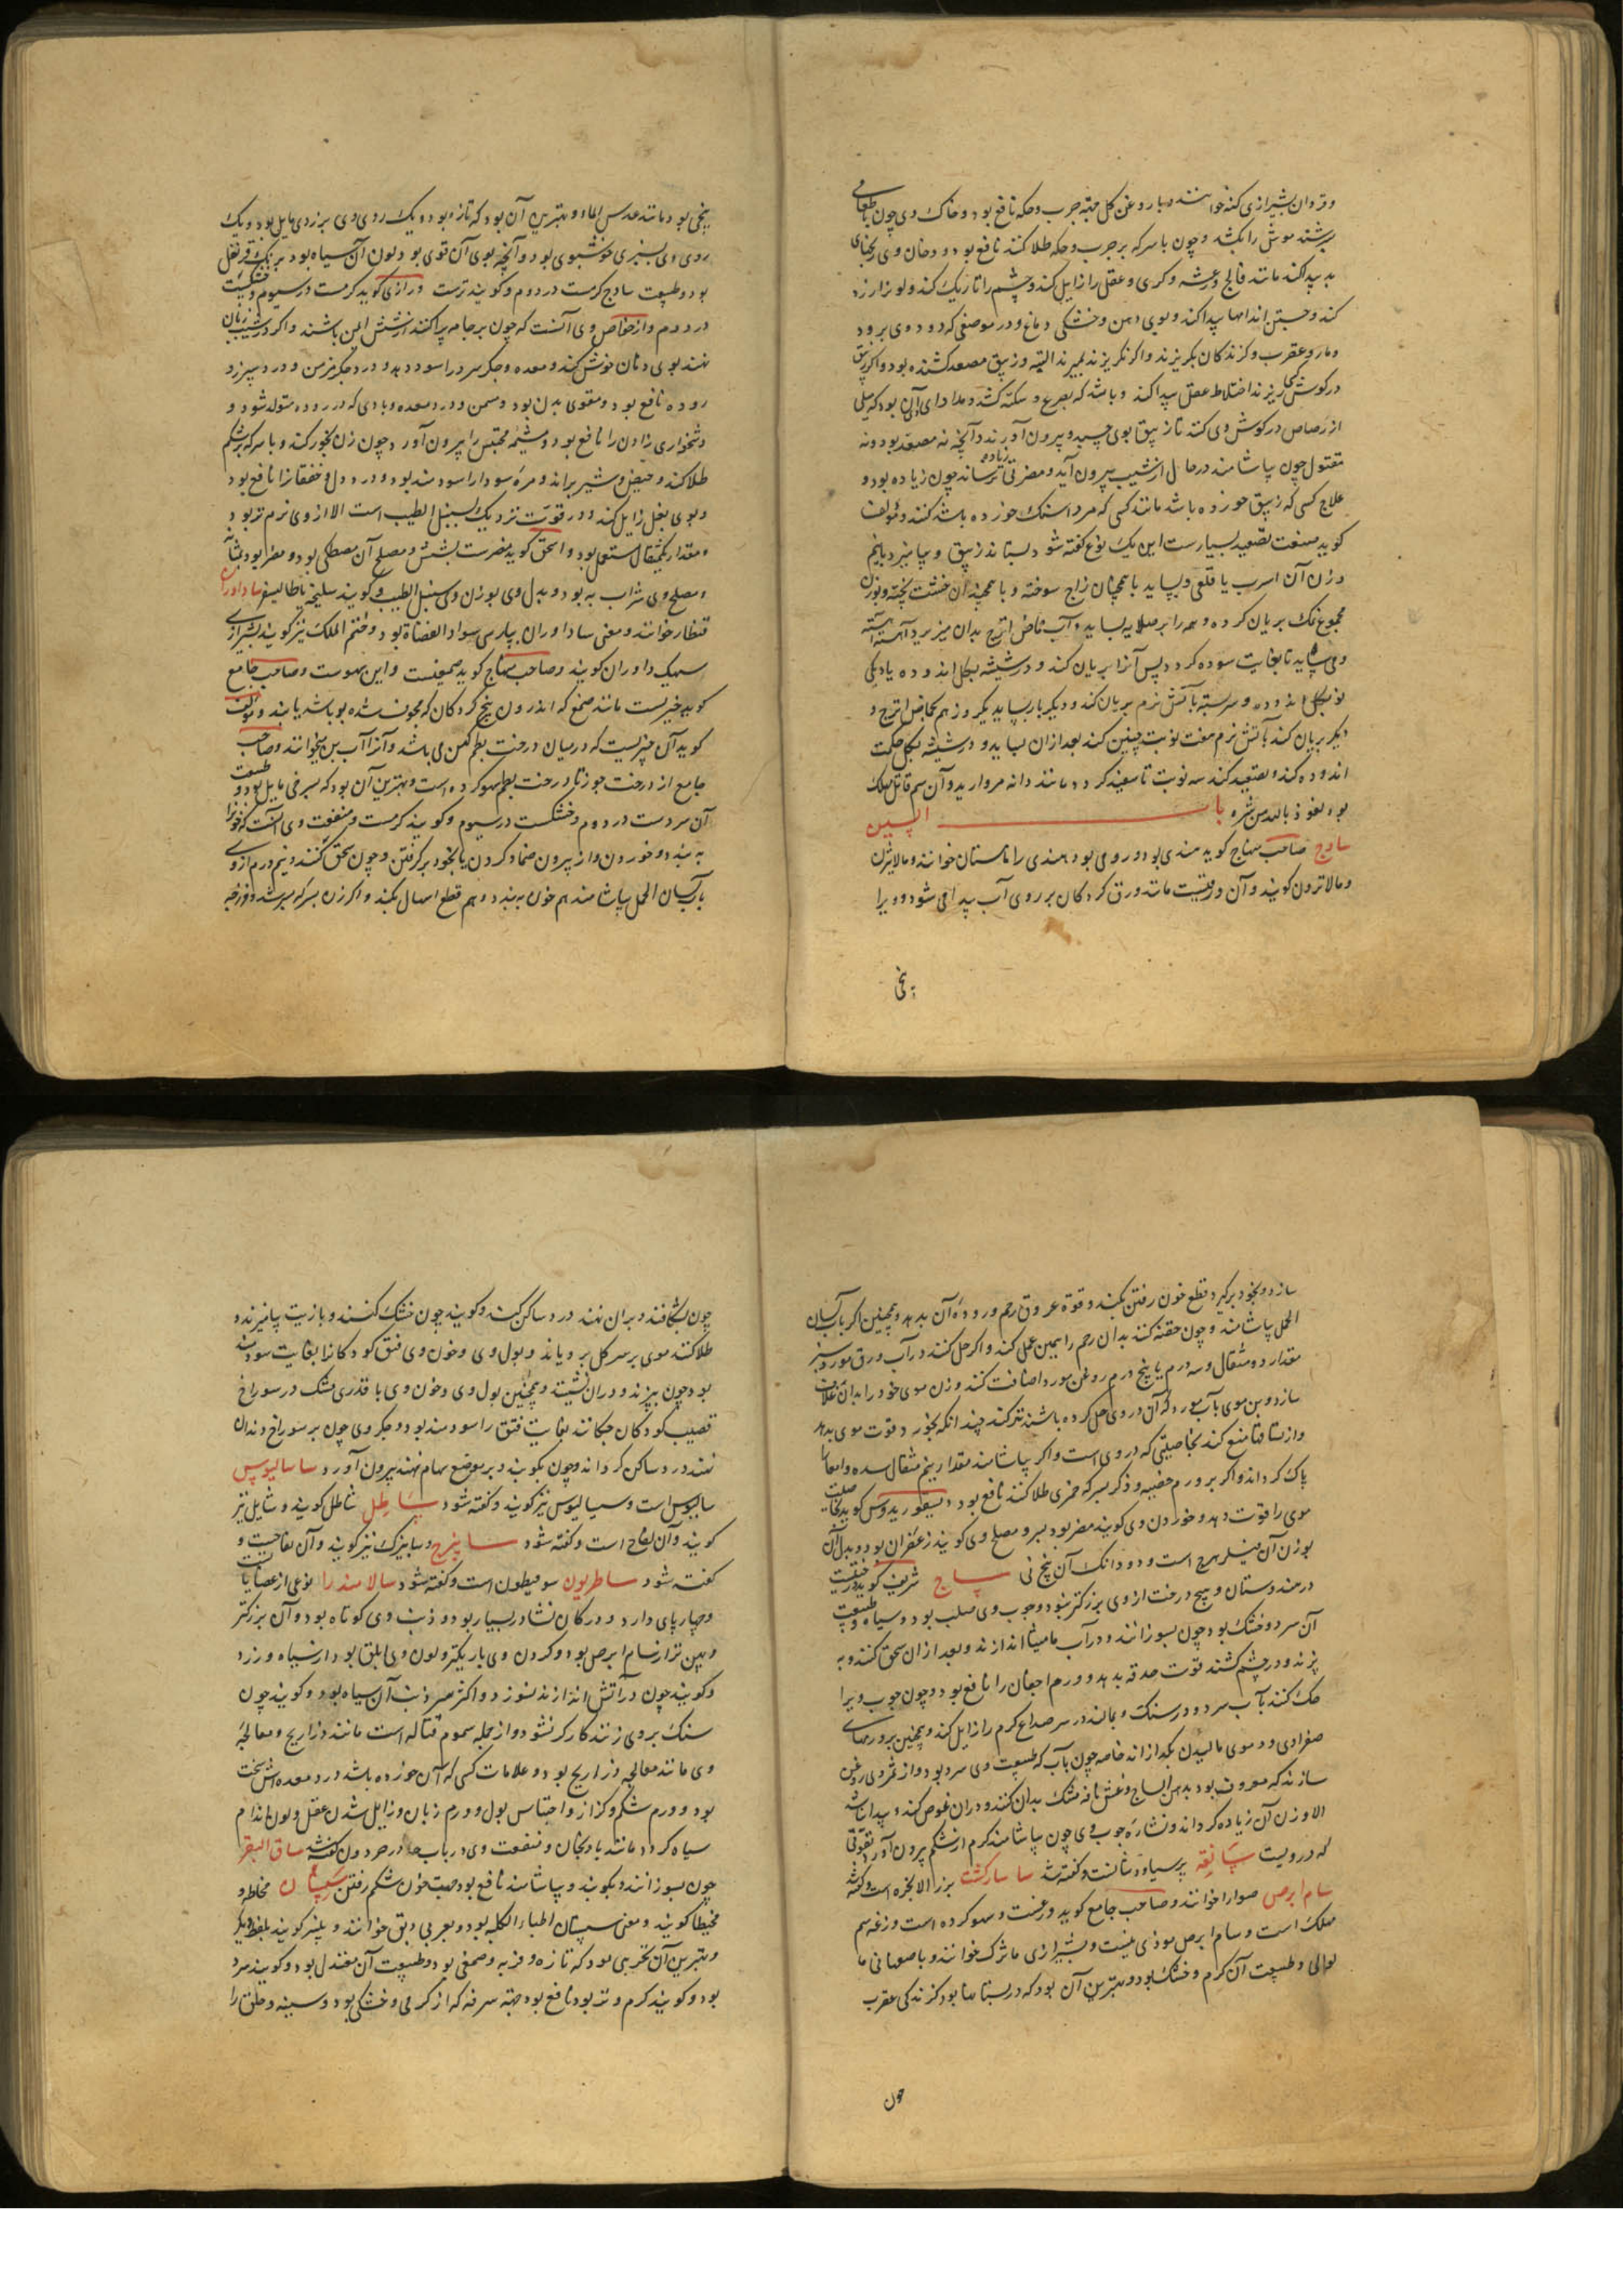 وتر دان بشیرازی کنه خوانند و با روغن کل جهة جرب و حکه نافع بود و خاک وی چون با طعامی
برشند موش را بکشد و چون با سرکه بر جرب و حکه طلا کنند نافع بود و دخان وی رنجهای
بد پیدا کند مانند فالج و رعشه و کری و عقل را زایل کند و چشم را تاریک کند و لون را زرد
کند و جستن اندامها پیدا کند و بوی دهن و خشکی دماغ و در موضعی که دود وی برود
و مار و عقرب و کزندکان بکریزند و اگر نکریزند بمیرند البته و زیبق مصعد کشنده بود و اگر زیبق
در کوش کسی ریزند اختلاط عقل پیدا کند و باشد که بصرع و سکته کشد و مداوای آن بود که میلی
از رصاص در کوش وی کنند تا زیبق بوی چسبد و بیرون آورند و آنچه نه مصعد بود و نه
مقتول چون بیاشامند در حال از شیب بیرون آید و مضرتی زیاده نرساند چون زیاده بود و
علاج کسی که زیبق خورده باشد مانند کسی که مرداسنک خورده باشد کنند و مؤلف
کوید صنعت تصعید بسیارست این یک نوع کفته شود بستانند زیبق و بیامیزد با نیم
وزن آن اسرب یا قلعی و بساید با همچنان زاج سوخته و با همچندان خشت پخته و بوزن
مجموع نمک بریان کرده و همه را بر صلایه بساید و آب حماض اترج بدان میریزد آهسته آهسته
و می ساید تا بغایت سوده کردد پس آنرا بریان کند و در شیشه بکل اندوده یا دیکی
نو بکل اندوده و سربسته بآتش نرم بریان کند و دیکر بار بساید یکروز هم بحماض اترج و
دیکر بریان کند بآتش نرم هفت نوبت چنین کند بعد از آن بساید و در شیشه بکل حکمت
اندوده کند و تصعید کند سه نوبت تا سفید کردد مانند دانه مروارید و آن سم قاتل مهلک
بود نعوذ بالله من شره باب السین
ساذج صاحب منهاج کوید هندی بود و رومی بود هندی را مابستان خوانند و مالابثرن
و مالاترون کویند و آن ورقیست مانند ورق کردکان بر روی آب پیدا می شود و ویرا
بیخی
بیخی بود مانند عدس الماء و بهترین آن بود که تازه بود و یک روی وی بزردی مایل بود و یک
روی وی بسبزی خوشبوی بود و آنچه بوی آن قوی بود و لون آن سیاه بود برنک قرنفل
بود و طبیعت ساذج کرمست در دوم و کویند ترست و رازی کوید کرمست در سیوم و خشکست
در دوم و از خواص وی آنست که چون بر جامه پراکنند از شبش ایمن باشند و اگر در شیب زبان
نهند بوی دهان خوش کند و معده و جکر سرد را سود دهد و درد جکر مزمن و درد سپرز و
روده نافع بود و مقوی بدن بود و مسمن و درد معده و بادی که در روده متولد شود و
دشخواری زادن را نافع بود و مشیمه محتبس را بیرون آورد چون زن بخور کند و با سرکه بر شکم
طلا کند و حیض و شیر براند و مره سودا را سودمند بود و درد دل و خفقانرا نافع بود
و بوی بغل زایل کند و در قوت نزدیک بسنبل الطیب است الا از وی نرم تر بود
و مقدار یکمثقال مستعمل بود و اسحق کوید مضرست بشش و مصلح آن مصطکی بود و مضر بود بمثانه
و مصلح وی شراب به بود و بدل وی بوزن وی سنبل الطیب و کویند سلیخه یا طالیسفر ساداوران
قنطار خوانند و معنی ساداوران بپارسی سواد القضاة بود و ختم الملک نیز کویند بشیرازی
سهیک داوران کویند و صاحب منهاج کوید صمغیست و این سهوست و صاحب جامع
کوید چیزیست مانند صمغ که اندرون بیخ کردکان که مجوف شده بود باشد یابند و مؤلف
کوید آن چیزیست که در میان درخت بطم کهن می باشد و آنرا آب بن میخوانند و صاحب
جامع از درخت جوز تا درخت بطم سهو کرده است و بهترین آن بود که بسرخی مایل بود و طبیعت
آن سردست در دوم و خشکست در سیوم و کویند کرمست و منفعت وی آنست که خونرا
به بندد و خوردن و از بیرون ضماد کردن یا بخود برکرفتن و چون سحق کنند و نیم درم از وی
بآب لسان الحمل بیاشامند هم خون به بندد و هم قطع اسهال بکند و اگر زن بسرکه سرشد و فرزجه
سازد و بخود برگیرد قطع خون رفتن بکند و قوة عروق رحم و روده آن بدهد و همچنین اگر بآب لسان
الحمل بیاشامند و چون حقنه کنند بدان رحم را همین عمل کند و اگر حل کنند در آب ورق مورد سبز
مقدار دو مثقال و سه درم یا پنج درم روغن مورد اضافت کنند و زن موی خود را بدان غلاف
سازد و بن موی بآب مورد که آن در وی حل کرده باشند تر کند چندانکه بخورد قوت موی بدهد
و از تساقط منع کند بخاصیتی که در وی است و اگر بیاشامند مقدار نیم مثقال سده و امعا را
پاک کرداند و اگر بر ورم خصیه و ذکر بسرکه خمری طلا کنند نافع بود و دیسقوریدوس کوید صلابت
موی را قوت دهد و خوردن وی کویند مضر بود بسر و مصلح وی کویند زعفران بود و بدل آن
بوزن آن فیلزهرج است و دو دانک آن نخ نی ساج شریف کوید درختیست
در هندوستان و هیچ درخت از وی بزرکتر نبود و چوب وی صلب بود و سیاه و طبیعت
آن سرد و خشک بود چون بسوزانند و در آب مامیثا اندازند و بعد از آن سحق کنند و به
پزند و در چشم کشند قوت حدقه بدهد و ورم اجفان را نافع بود و چون چوب ویرا
حک کنند بآب سرد و در سنک و بمالند در سر صداع کرم را زایل کند و همچنین بر ورمهای
صفراوی و دموی مالیدن بکدازاند خاصه چون بآب که طبیعت وی سرد بود و از ثمر وی روغن
سازند که معروف بود بدهن الساج و غش نافه مشک بدان کنند و در آن غوص کند و پیدا نباشد
الا وزن آن زیاده کرداند و نشاره چوب وی چون بیاشامند کرم از شکم بیرون آورد بقوتی
که در ویست سانقه پرسیاوشانست و کفته شد ساسارکشت بزر الانجره است و کفته شد
سام ابرص صوارا خوانند و صاحب جامع کوید وزغست و سهو کرده است وزغه سم
مهلک است و سام ابرص موذی نیست و بشیرازی ماترک خوانند و باصفهانی ما
لولی و طبیعت آن کرم و خشک بود و بهترین آن بود که در بستانها بود کزندکی عقرب
چون
چون بشکافند و بران نهند درد ساکن کند و کویند چون خشک کنند و با زیت بیامیزند و
طلا کنند موی بر سر کل برویاند و بول وی و خون وی فتق کودکانرا بغایت سودمند
بود چون بپزند و در آن نشینند و همچنین بول وی و خون وی با قدری مشک در سوراخ
قضیب کودکان چکانند بغایت فتق را سودمند بود و جکر وی چون بر سوراخ دندان
نهند درد ساکن کرداند و چون بکوبند و بر موضع سهام نهند بیرون آورد ساسالیوس
سالیوس است و سیسالیوس نیز کویند و کفته شود ساطل شاطل کویند و شایل نیز
کویند و آن لفاح است و کفته شود سابیزج و سابیزک نیز کویند و آن تفاحیست و
کفته شود ساطریون سوفیطون است و کفته شود سالامندرا نوعی از عضایاست
و چار پای دارد و در کان نشادر بسیار بود و ذنب وی کوتاه بود و آن بزرکتر
و پهن تر از سام ابرص بود و کردن وی باریکتر و لون وی ابلق بود از سیاه و زرد
و کویند چون در آتش اندازند نسوزد و اکثر سر ذنب آن سیاه بود و کویند چون
سنک بر وی زنند کارکر نشود و از جمله سموم قتاله است مانند ذراریح و معالجه
وی مانند معالجه ذراریح بود و علامات کسی که آن خورده باشد درد معده سخت
بود و ورم شکم و کزاز و احتباس بول و ورم زبان و زایل شدن عقل و لون اندام
سیاه کردد مانند بادنجان و منفعت وی در باب حا در حردون کفته شد ساق البقر
چون بسوزانند و بکوبند و بیاشامند نافع بود جهت خون شکم رفتن سپستان مخاطه و
مخیطا کویند و معنی سپستان اطباء الکلبه بود و بعربی دبق خوانند و بلفظ دیکر
و بهترین آن بحری بود که تازه و فربه و صمغی بود و طبیعت آن معتدل بود و کویند سرد
بود و کویند کرم و تر بود نافع بود جهة سرفه که از کرمی و خشکی بود و سینه و حلق را